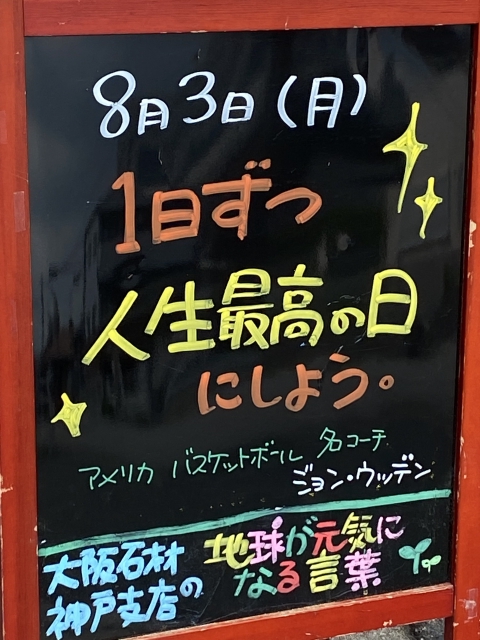 8月3日(月)
1日ずつ
人生最高の日
にしよう。
アメリカ バスケットボール 名コーチ
ジョン・ウッデン
大阪石材
神戸支店の
地球が元気に
なる言葉